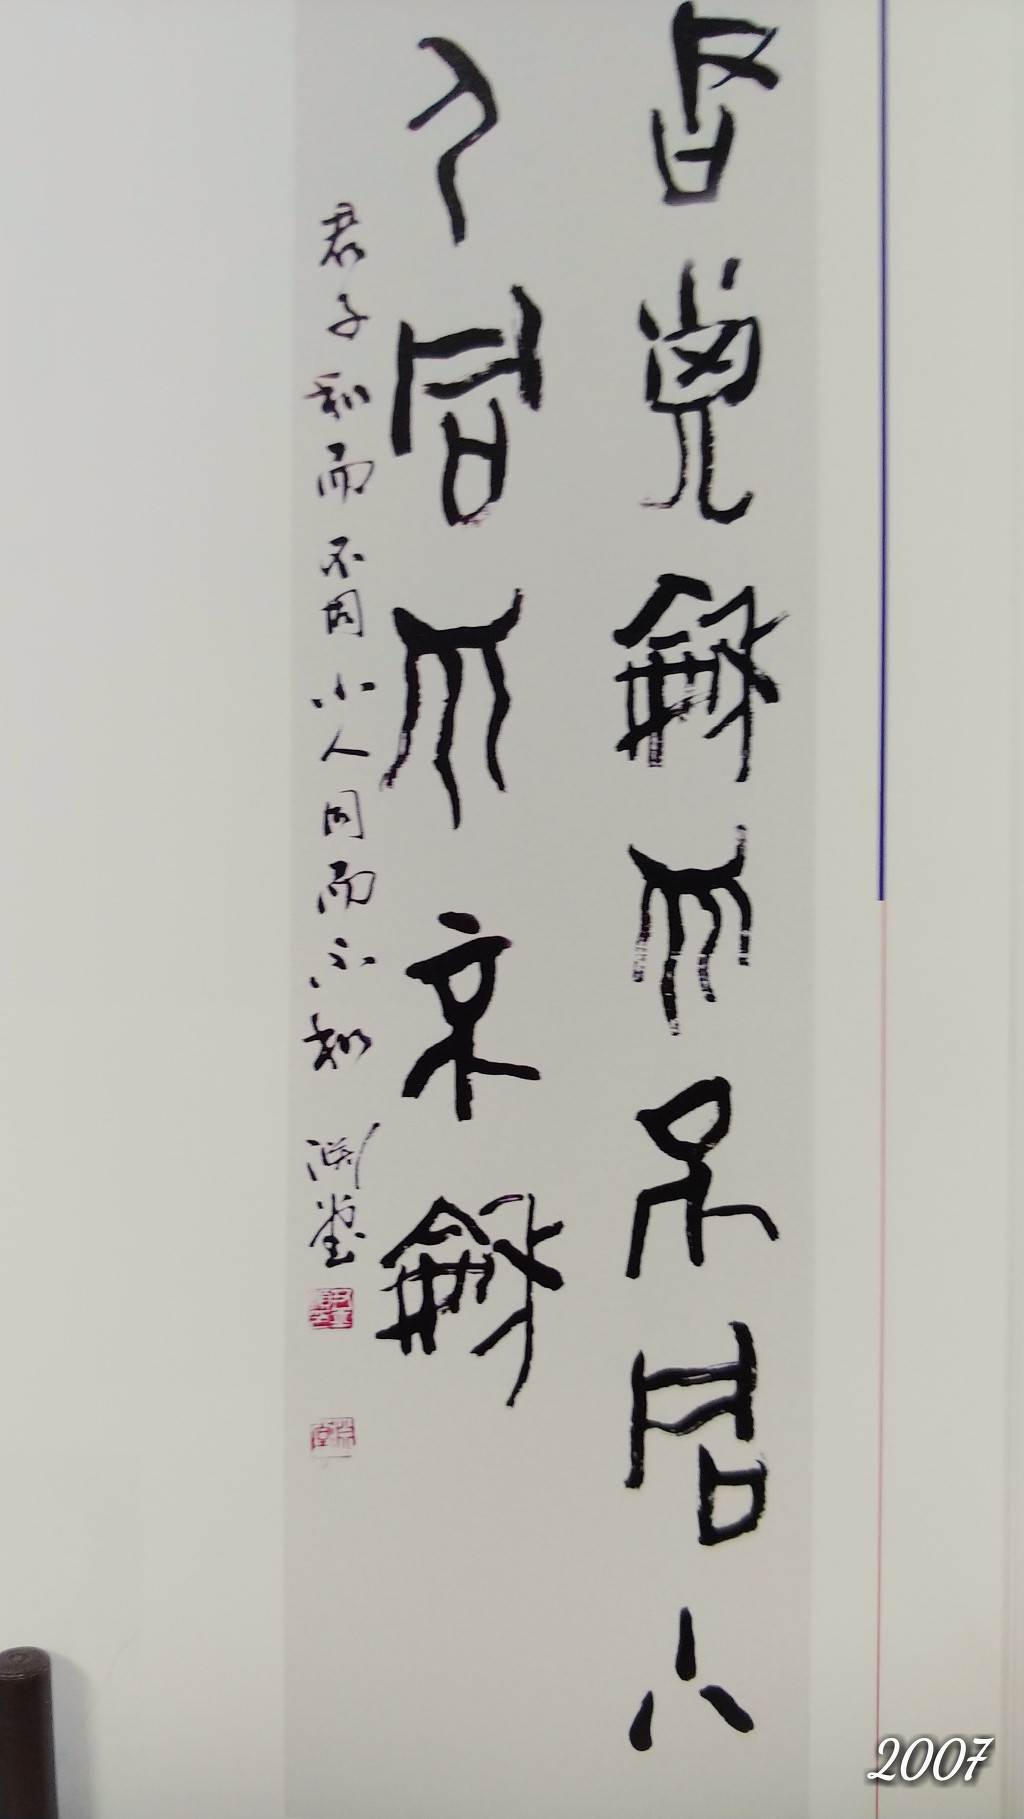 君子和而不同小
人同而不和
君子和而不同小人同而不和 淵堂
淵堂
2007